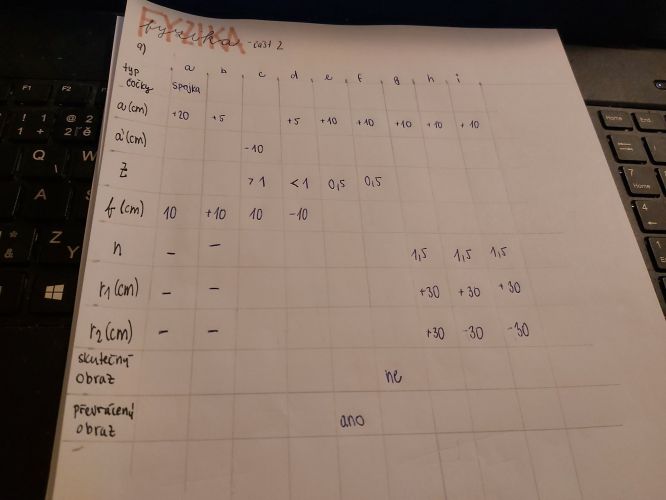 FYZIKA
fyzika - část 2
9)
typ čočky a b c d e f g h i
spojka
a (cm) +20 +5 +5 +10 +10 +10 +10 +10
a'(cm) -10
Z >1 <1 0,5 0,5
f (cm) 10 +10 10 -10
n - - 1,5 1,5 1,5
r1 (cm) - - +30 +30 +30
r2 (cm) - - +30 -30 -30
skutečný
obraz ne
převrácený
obraz ano
F1
F2
Q
W
A
S
Z
Y
X
Home
End
7
Home
4